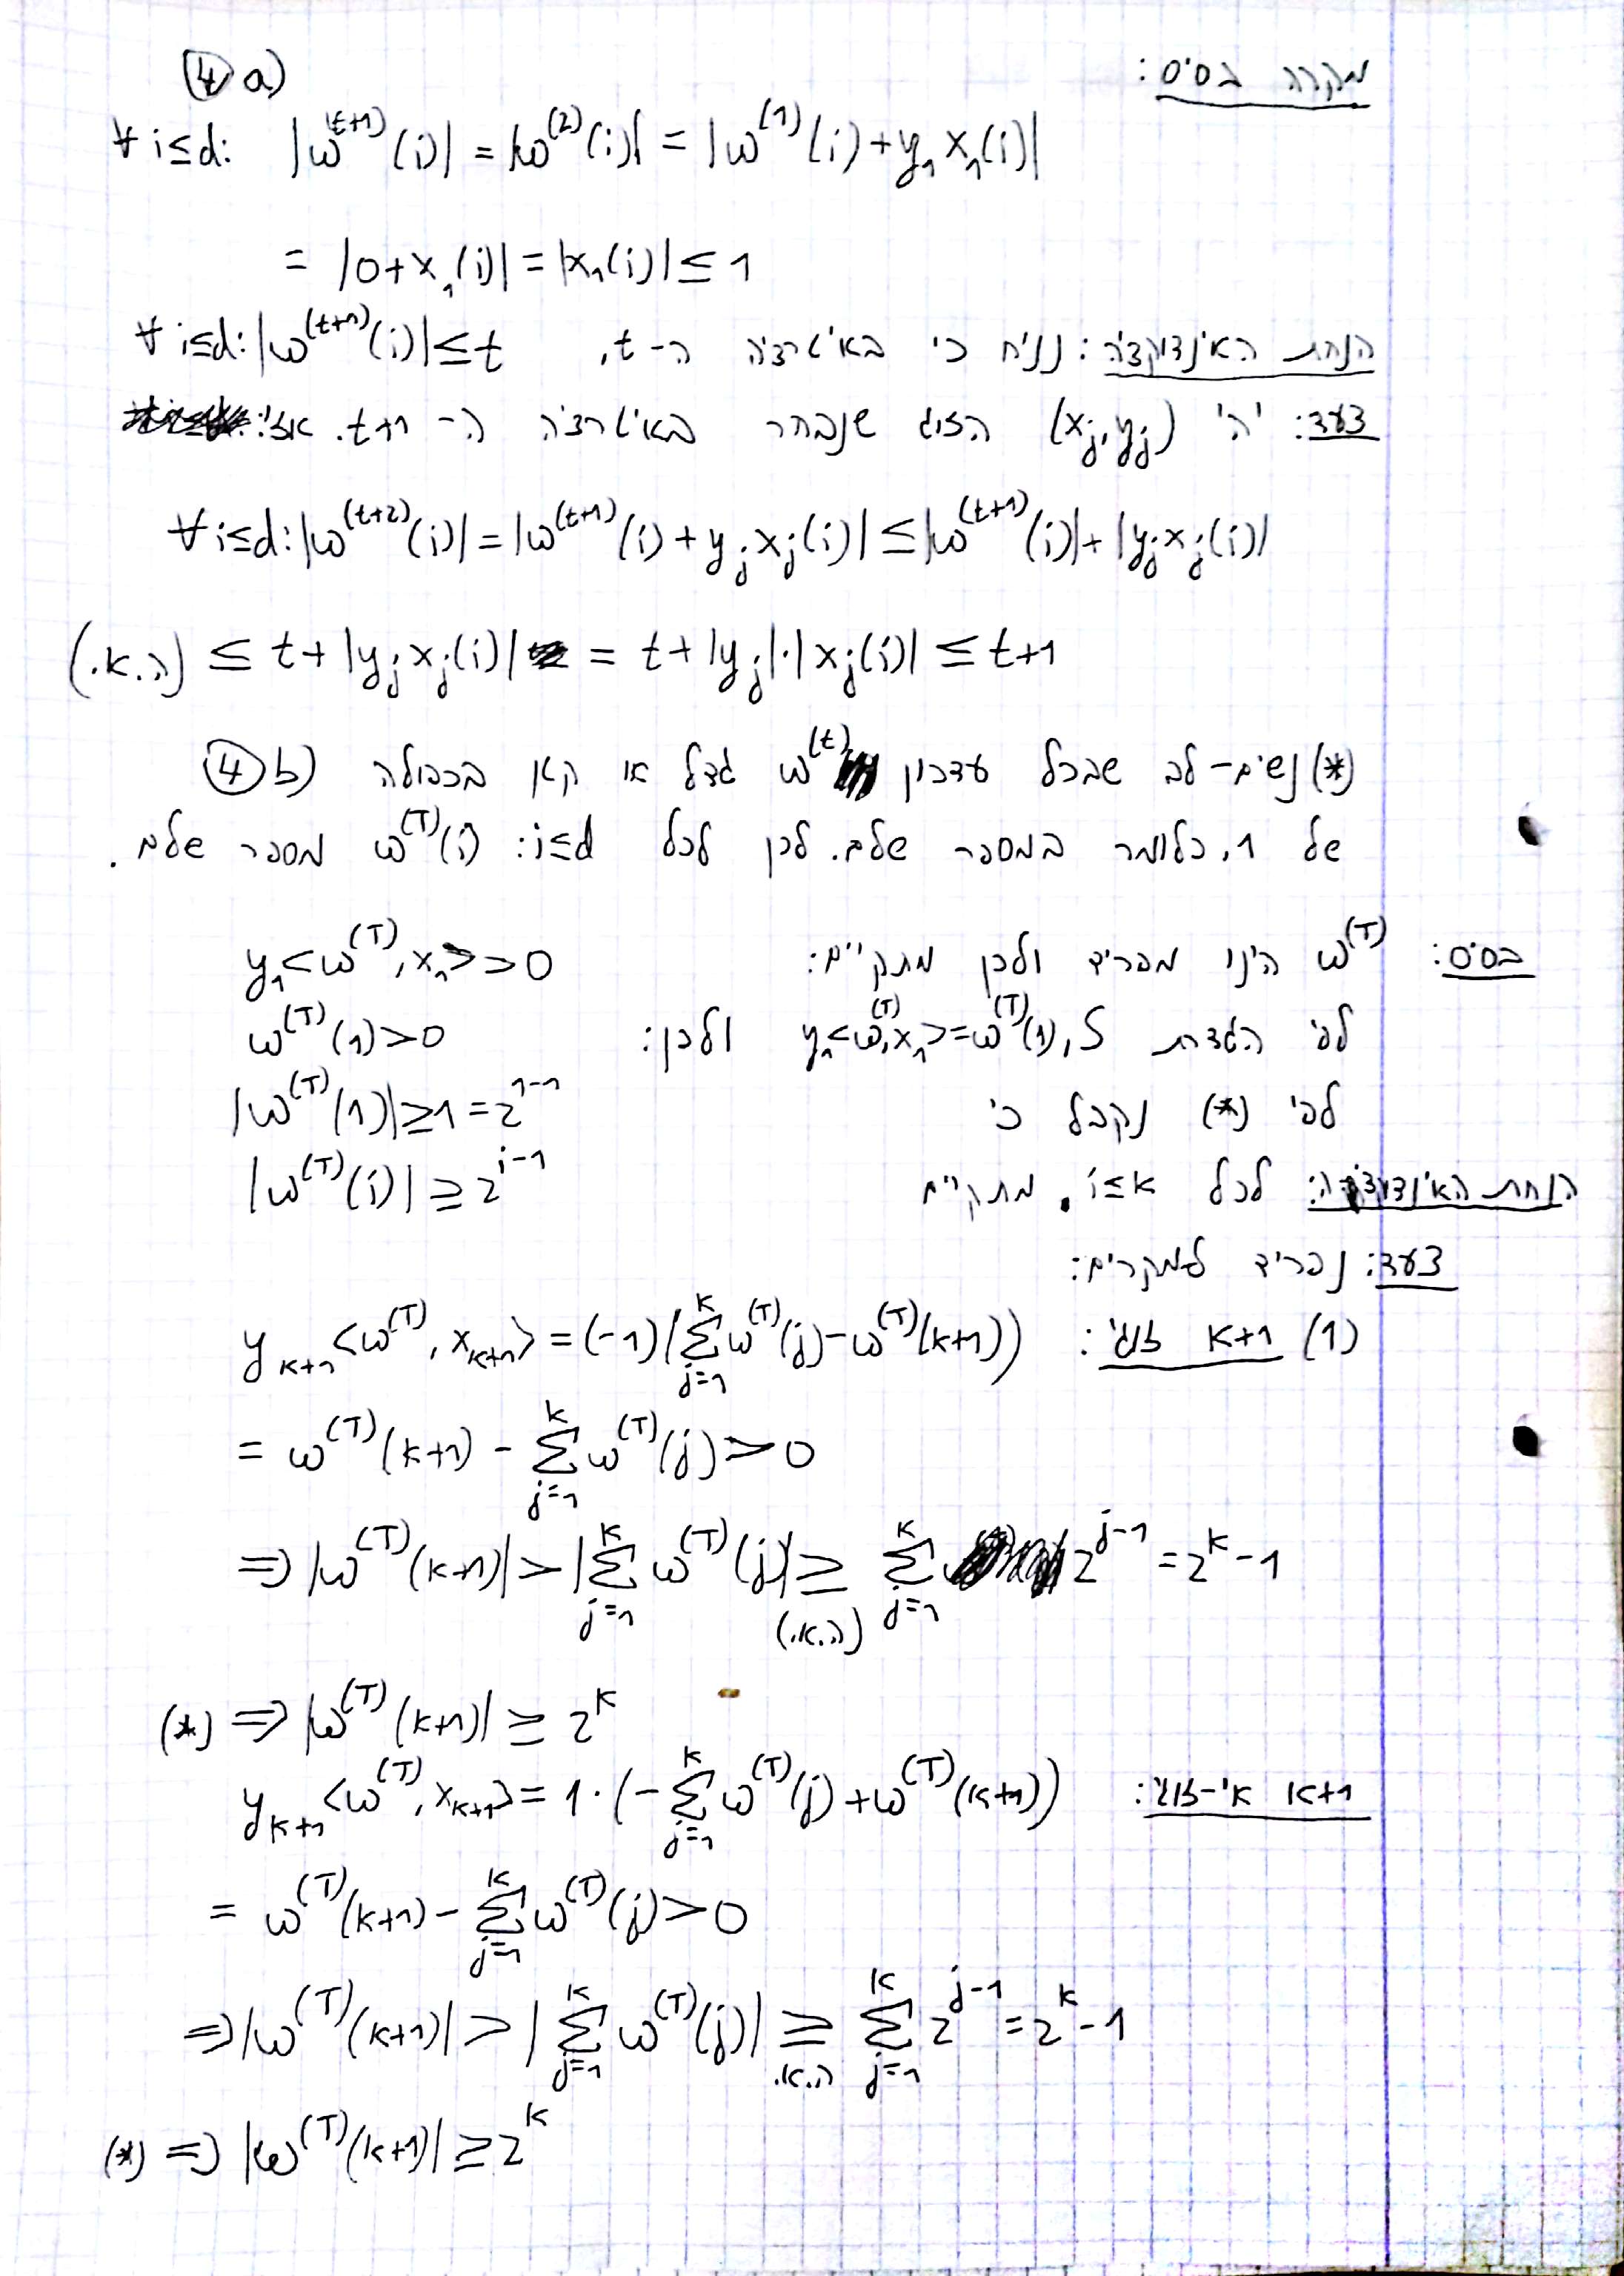 ④ a) מקרה בסיס:
∀ i≤d: |ω^(t+1)(i)| = |ω^(2)(i)| = |ω^(1)(i)+y₁x₁(i)|
= |0+x₁(i)| = |x₁(i)| ≤ 1
הנחת האינדוקציה: נניח כי באיטרציה ה-t, ∀ i≤d: |ω^(t+1)(i)| ≤ t
צעד: יהי (x_j,y_j) הזוג שנבחר באיטרציה ה- t+1. אזי:
∀ i≤d: |ω^(t+2)(i)| = |ω^(t+1)(i) + y_j x_j(i)| ≤ |ω^(t+1)(i)| + |y_j x_j(i)|
(ה.א.) ≤ t + |y_j x_j(i)| = t + |y_j|·|x_j(i)| ≤ t+1
④ b) (*) נשים-לב שבכל עדכון ω^(t) גדל או קטן בכפולה
של 1, כלומר במספר שלם. לכן לכל i≤d: ω^(T)(i) מספר שלם.
בסיס: ω^(T) הינו מפריד ולכן מתקיים: y₁<ω^(T), x₁> > 0
לפי הגדרת S, y₁<ω^(T),x₁> = ω^(T)(1) ולכן: ω^(T)(1) > 0
לפי (*) נקבל כי |ω^(T)(1)| ≥ 1 = 2^(1-1)
הנחת האינדוקציה: לכל i≤k מתקיים |ω^(T)(i)| ≥ 2^(i-1)
צעד: נפריד למקרים:
(1) k+1 זוגי: y_(k+1)<ω^(T), x_(k+1)> = (-1)(∑_(j=1)^k ω^(T)(j) - ω^(T)(k+1))
= ω^(T)(k+1) - ∑_(j=1)^k ω^(T)(j) > 0
⇒ |ω^(T)(k+1)| > |∑_(j=1)^k ω^(T)(j)| ≥_(ה.א.) ∑_(j=1)^k 2^(j-1) = 2^k - 1
(*) ⇒ |ω^(T)(k+1)| ≥ 2^k
k+1 אי-זוגי: y_(k+1)<ω^(T), x_(k+1)> = 1·(-∑_(j=1)^k ω^(T)(j) + ω^(T)(k+1))
= ω^(T)(k+1) - ∑_(j=1)^k ω^(T)(j) > 0
⇒ |ω^(T)(k+1)| > |∑_(j=1)^k ω^(T)(j)| ≥_(ה.א.) ∑_(j=1)^k 2^(j-1) = 2^k - 1
(*) ⇒ |ω^(T)(k+1)| ≥ 2^k